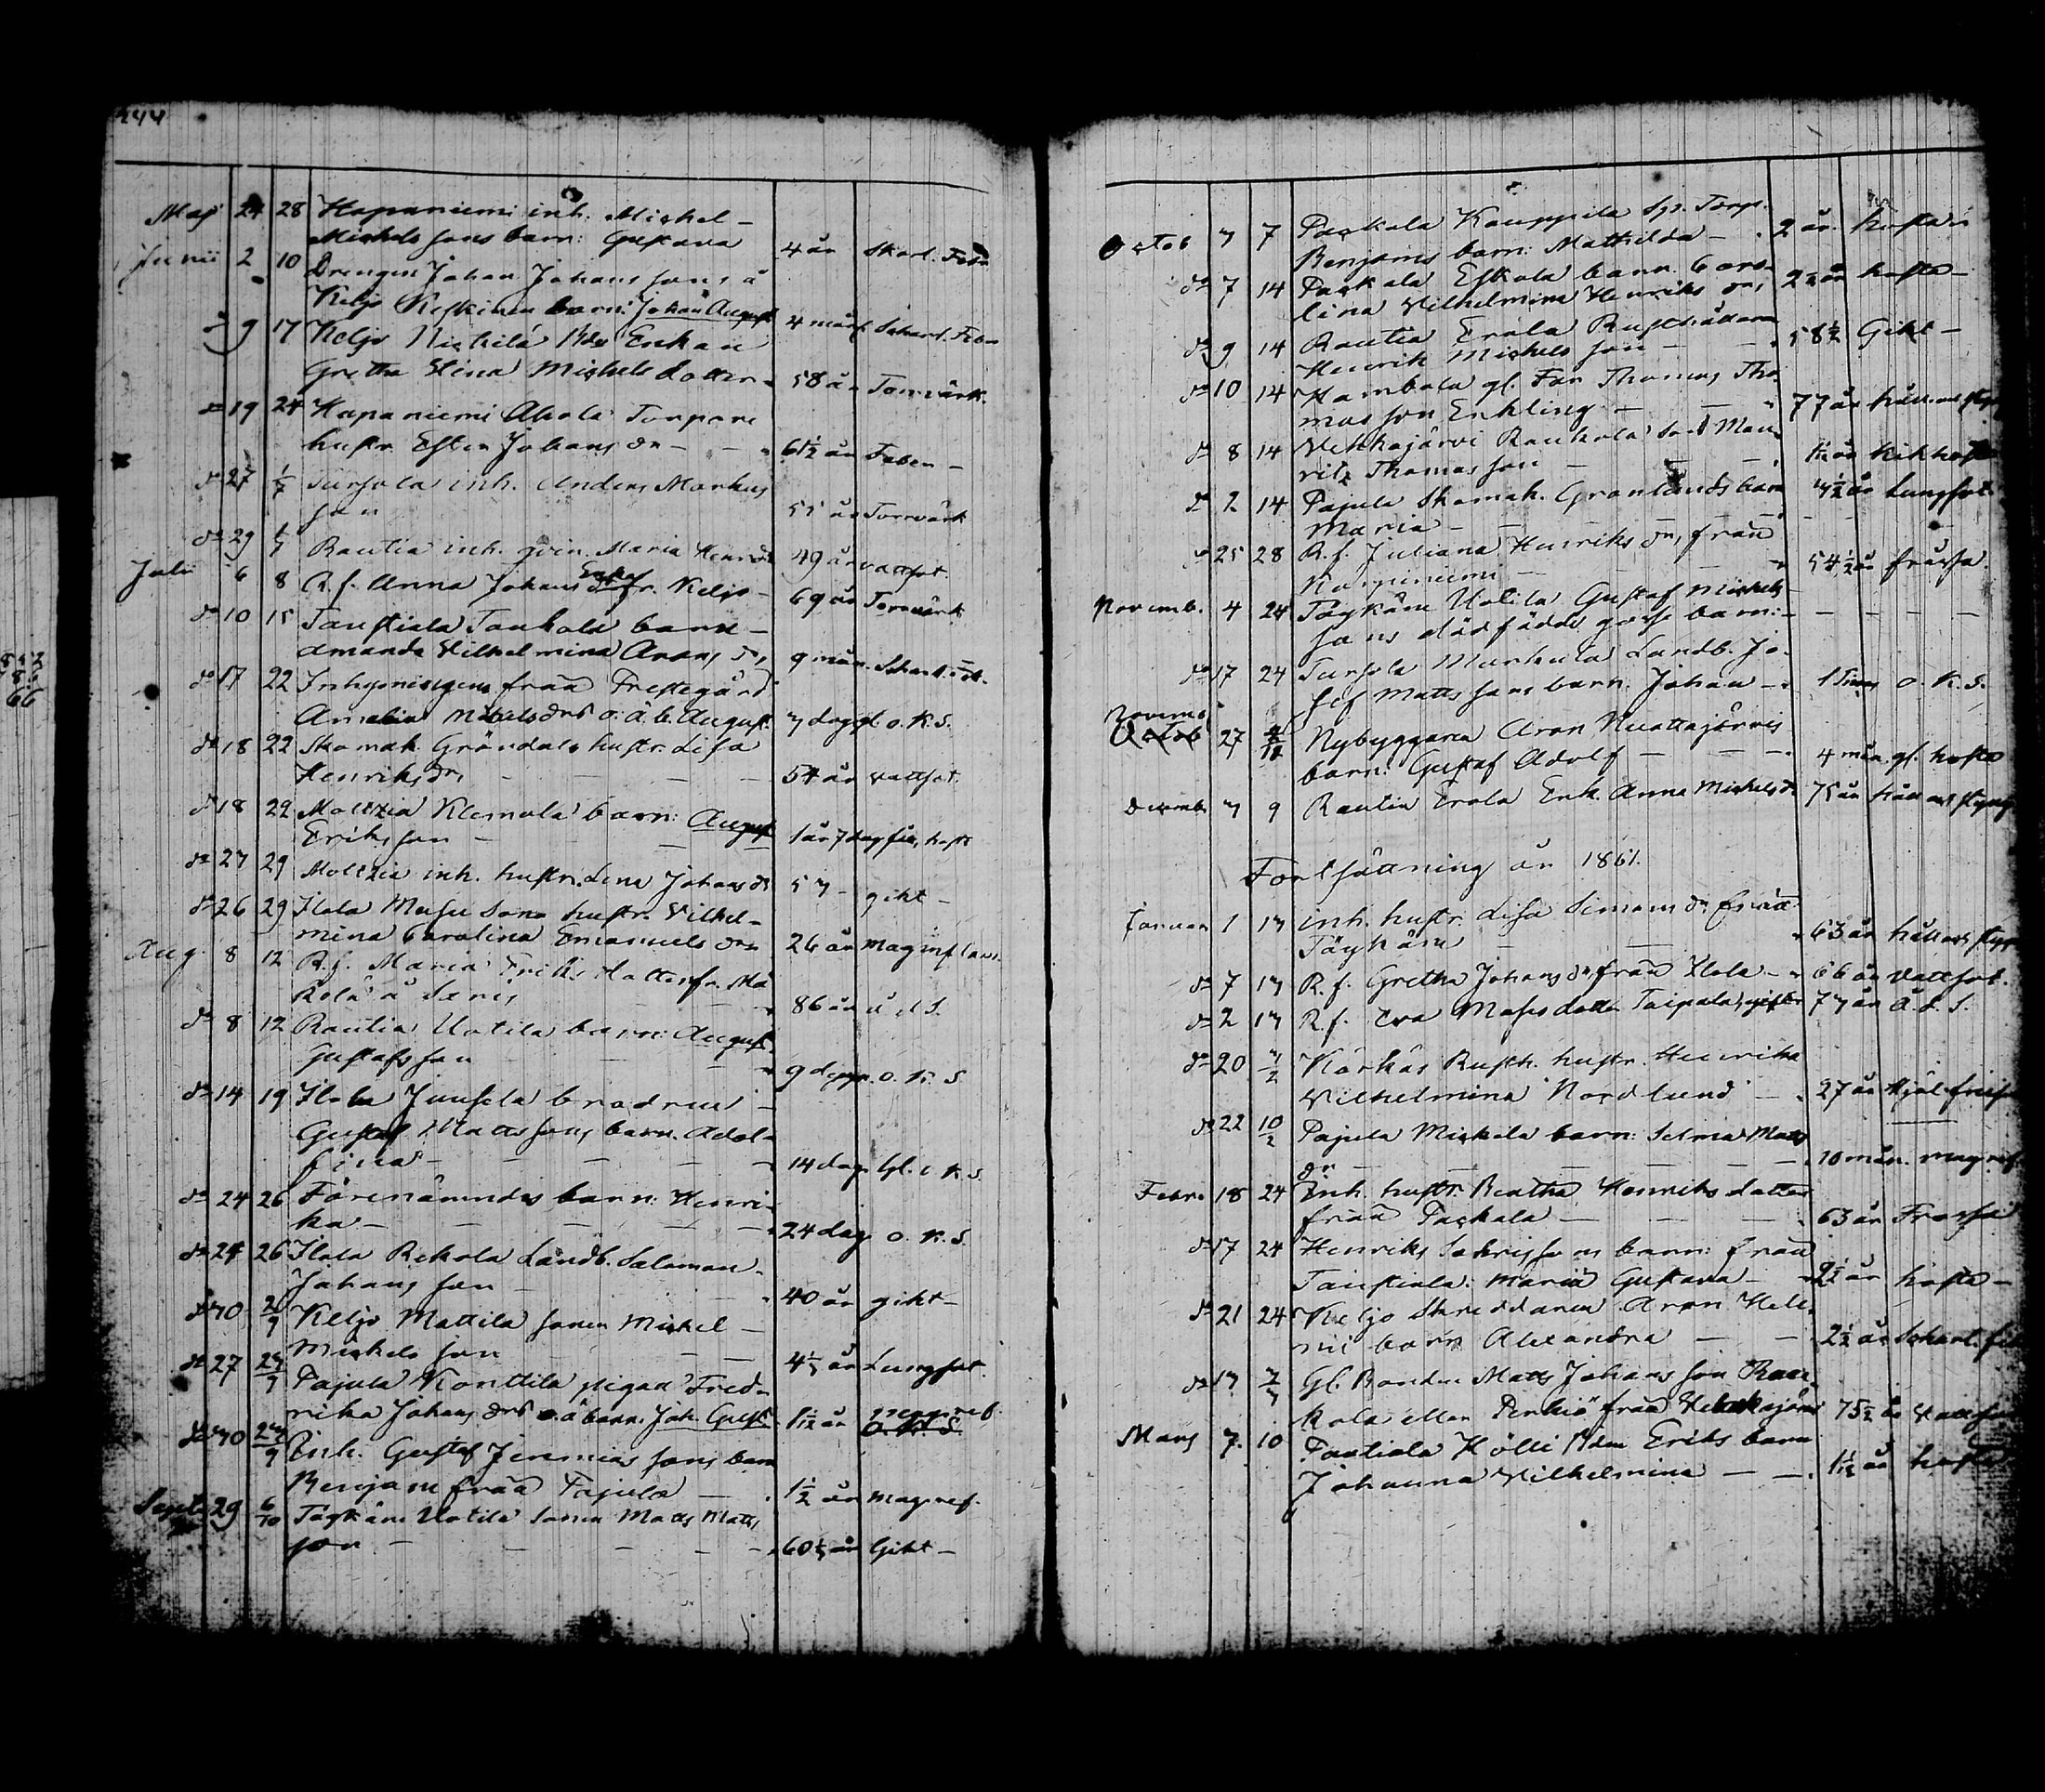 244
Maj 24 28 Haapaniemi inh. Michel
Michels sons barn: Gustava 4 år Skarl. Feber
Junii 2 10 Drengen Johan Johans sons å
Keljo Keskinen barn: Johan August 4 mån. Scharl. Feber
9 17 Keljo Nickilä Bds Enkan
Gretha Stina Michels dotter 58 år Torrvärk.
do 19 24 Hapaniemi Ahola Torpare
hustr. Ester Johans dr 61½ år Feber
do 27 1/7 Tursola inh. Anders Markus
son 55 år Torrvärk
do 29 1/7 Rautia inh. qvin. Maria Henr. dr 49 år vattsot.
Julii 6 8 R.f. Anna Johans dr fr. Keljo 69 år Torrvärk
do 10 15 Taustiala Tonkola barn
Amanda Vilhelmina Arons dr 9 mån. Scharl. feb.
do 17 22 Inhysespigens fraa Prestegård
Amalia Michels drs o. ä. b. August 7 dag gl. o. K. S.
do 18 22 Skomak. Gröndals hustr. Lisa
Henriks dr 54 år vattsot.
do 18 29 Moltzia Klemola barn: August
Eriksson 1 år 7 dag host
do 27 29 Moltzia inh. hustr. Lena Johans dr 57 gikt
do 26 29 Ilola Musu Sons hustr. Vilhel-
mina Carolina Emanuels dr 26 år mag inflam.
Aug. 8 12 R.f. Maria Eriks dotter fr.
å 86 år å d S.
do 8 12 Rautia Uotila barn: August
Gustafsson 9 dygn. o. K. S
do 14 19 Ilola Juusela brodren
Gustaf Mattssons barn. Adol-
fina 14 dag. gl. o K S.
do 24 26 Förenämndes barn: Henri-
ka 24 dag o. K. S.
do 24 26 Ilola Rekola Landb. Salomon
Johans son 40 år gikt
do 30 2/9 Keljo Mattila sonen Michel
Michels son 4½ år Lungsot.
do 27 23/9 Pajula Konttila pigan Fred-
rika Johans drs o. ä barn. Joh. Gust. 1 1/12 år magref.
O. K. S.
do 30 23/9 Inh. Gustaf Jeremias sons barn
Benjam fraa Pajula 1½ år magref.
Sept. 29 6/10 Täykäre Uotila Sonen Matts Matts
son 60½ år Gikt
Octob 3 7 Packala Kauppila Sp. Torp.
Benjams barn: Mathilda 2 år hosta
do 7 14 Packala Eskola barn Caro-
lina Vilhelmina Henriks dr 2½ år hosta
do 9 14 Rautia Erola Rusthållaren
Henrik Michels son 58½ Gikt
do 10 14 Hambola gl. Far Thomas Tho-
mas son Enkling 77 år håll och styng
do 8 14 Vehkajärvi Raukola Sold Mau-
ritz Thomas son 1 1/12 år Kikhosta
do 2 14 Pajula Skomak. Grönlunds barn
Maria 3½ år Lungsot.
do 25 28 R.f. Juliana Henriks dr, fraa
54½ år fråssa.
Novemb. 4 24 Täykäre Uotila Gustaf Michels
sons dödfödda gosse barn:
do 17 24 Tursola Markula Landb. Jo-
sef Matts sons barn: Johan 1 Timm o. K. S.
Novemb
Octob 27 2/12 Nybyggaren Aron Nuottajärvis
barn: Gustaf Adolf 4 mån. gl. hosta
Decemb. 7 9 Rautia Erola Enk. Anna Michels dr 75 år håll och styng
Fortsättning år 1861.
Januari 1 13 inh. hustr. Lisa Simons dr fraa
Täykäre 63 år håll och styng
do 7 13 R.f. Gretha Johans dr fraa Ilola 66 år Vattsot.
do 2 13 R.f. Eva Mats dotter Taipala, gift 77 år Å. d. S.
do 20 3/2 Körkäs Rusth. hustr. Henrika
Vilhelmina Nordlund 27 år
do 22 10/2 Pajula Mickela barn: Selma Matts
dr 10 mån. magref.
Febr. 18 24 Inh. hustr. Beatha Henriks dotter
fraa Packala 63 år Frossa
do 17 24 Henriks Sakrissons barn: fraa
Taustiala: Maria Gustava 2½ år hosta
do 21 24 Keljo Skreddaren Aron Hele-
nii barn Alexandra 2½ år Scharl. feb.
do 17 3/3 Gl. Bonden Matts Johans son Rau-
kola eller Perkiö fraa Vehkajärvi 75½ år Vattsot
Mars 7. 10 Pautiala Hölli Bdn Eriks barn
Johanna Vilhelmina 1 1/12 år hosta